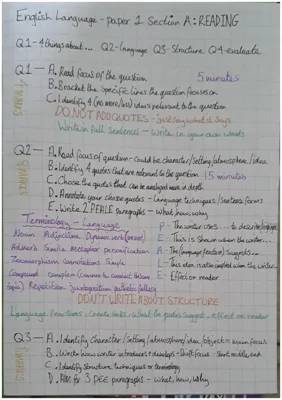 English Language - paper 1 Section A: READING
Q1 - 4 things about... Q2 - language Q3 - Structure Q4 - evaluate
Q1 - A. Read focus of the question 5 minutes
4 MARKS
B. Bracket the specific lines the question focuses on
C. Identify 4 (no more/less) ideas relevant to the question
DO NOT ADD QUOTES - Just say what it says
Write in full sentences - write in your own words
Q2 - A. Read focus of question - could be character/setting/atmosphere/idea
8 MARKS
B. Identify 4 quotes that are relevant to the question
C. Choose the quotes that can be analysed more in depth 15 minutes
D. Annotate your chosen quotes - language techniques/sentence focus
E. Write 2 PEALE paragraphs - what, how, why
Terminology - Language
Noun Adjective Dynamic verb
Adverb Simile Metaphor personification
Zoomorphism connotations Simple
Compound complex
Repetition juxtaposition pathetic fallacy
P - The writer uses... to describe
E - This is shown when the writer...
A - The (language feature) suggests...
E - Effect on reader
DON'T WRITE ABOUT STRUCTURE
Language functions, Connotations, what the quotes suggest, effect on reader
Q3 - A. Identify character/setting/atmosphere/idea/object = main focus
8 MARKS
B. Write how writer introduces + develops - shift focus - start, middle, end
C. Identify structure techniques or terminology
D. Aim for 3 PEE paragraphs - what, how, why